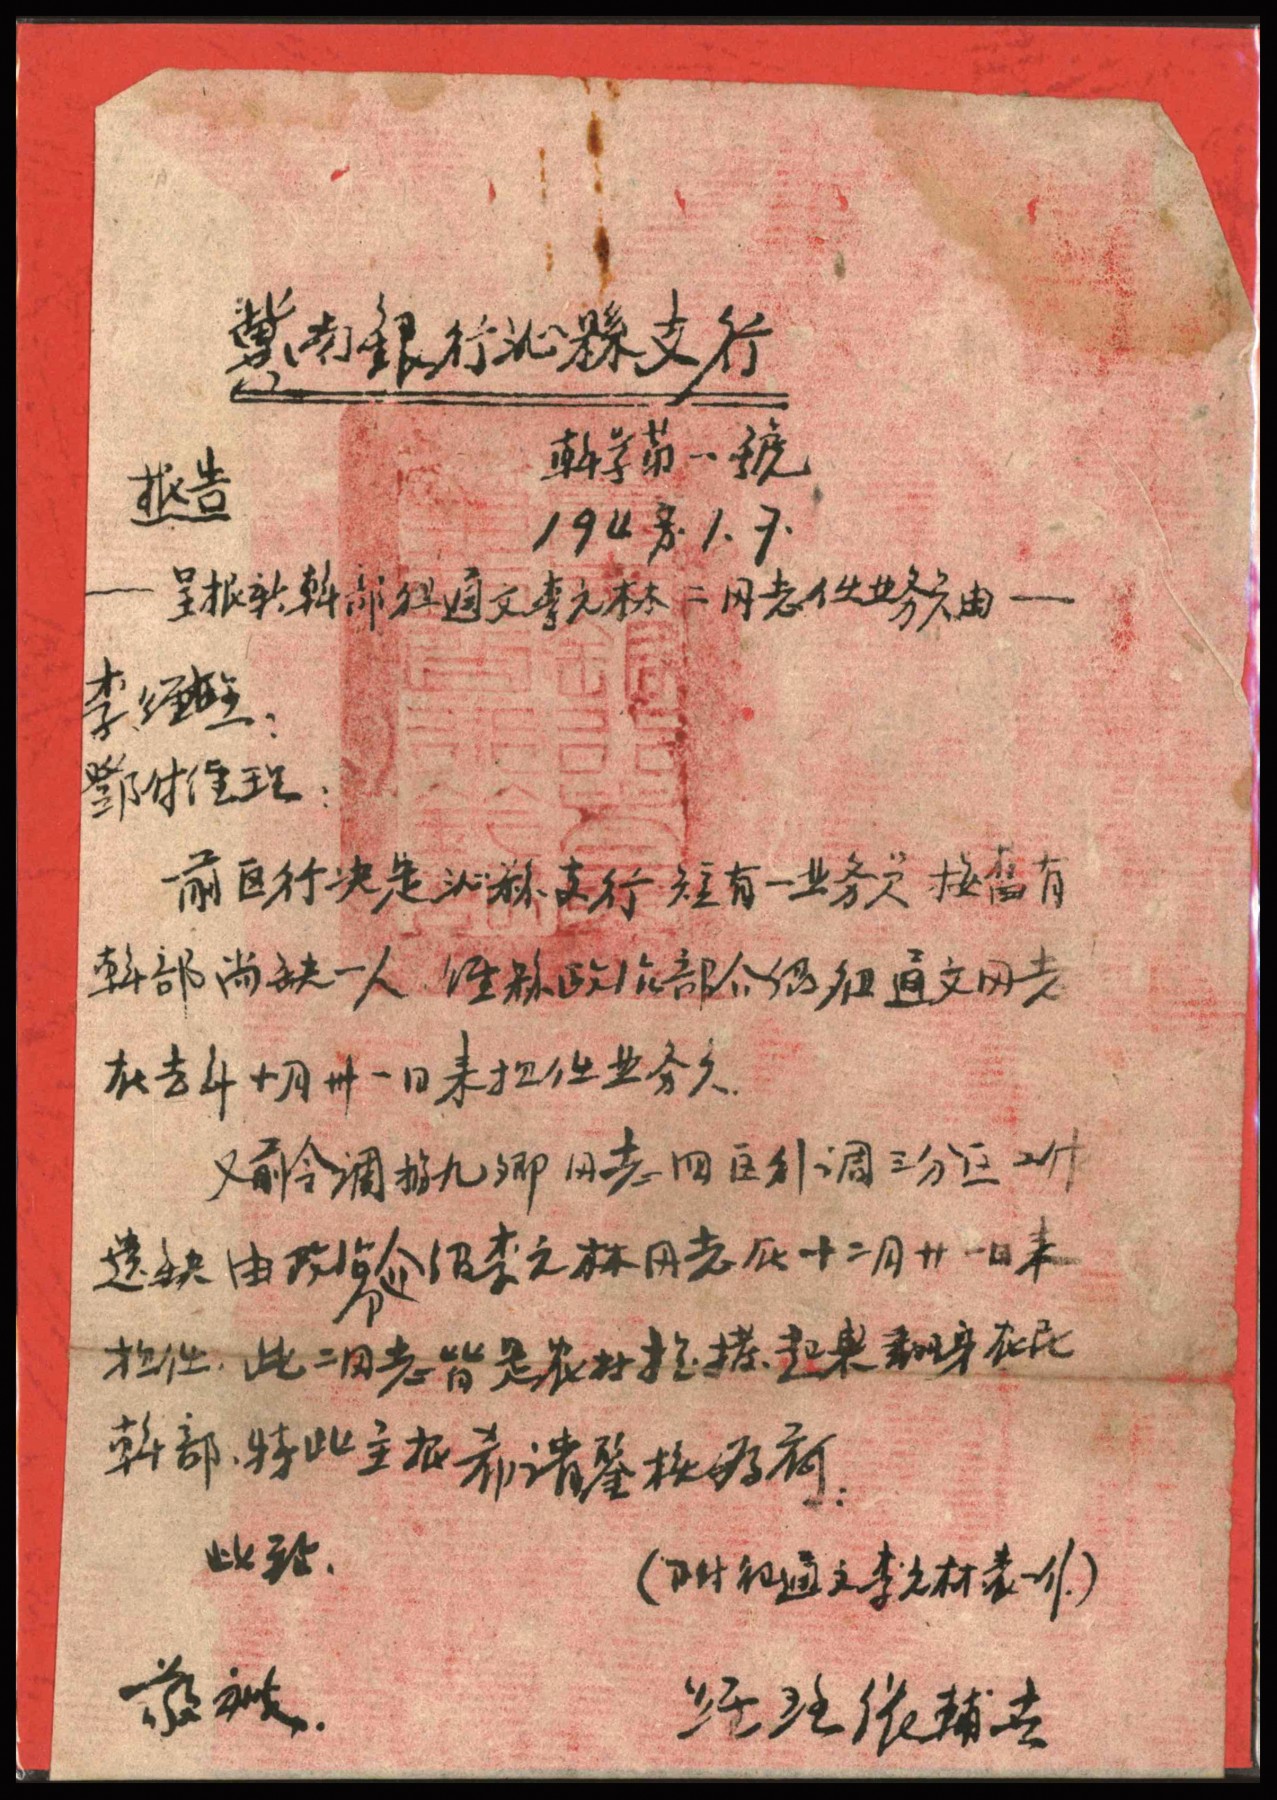 冀南銀行沁縣支行
幹字第一號
報告
1948.1.7.
— 呈报新幹部 通文李元林二同志任业务员由 —
李经理:
鄧付经理:
前区行决定沁縣支行 有一业务员 按舊有
幹部尚缺一人 经縣政治部介绍 通文同志
在去年十月卅一日来担任业务员.
又前令调 九卿同志四区行调三分区工作
遗缺由政治部介绍李元林同志在十二月廿一日来
担任. 此二同志皆是农村 起来翻身农民
幹部、特此呈报希请鑒核为荷:
此致.
(附 通文李元林表一份.)
敬礼.
经理 輔